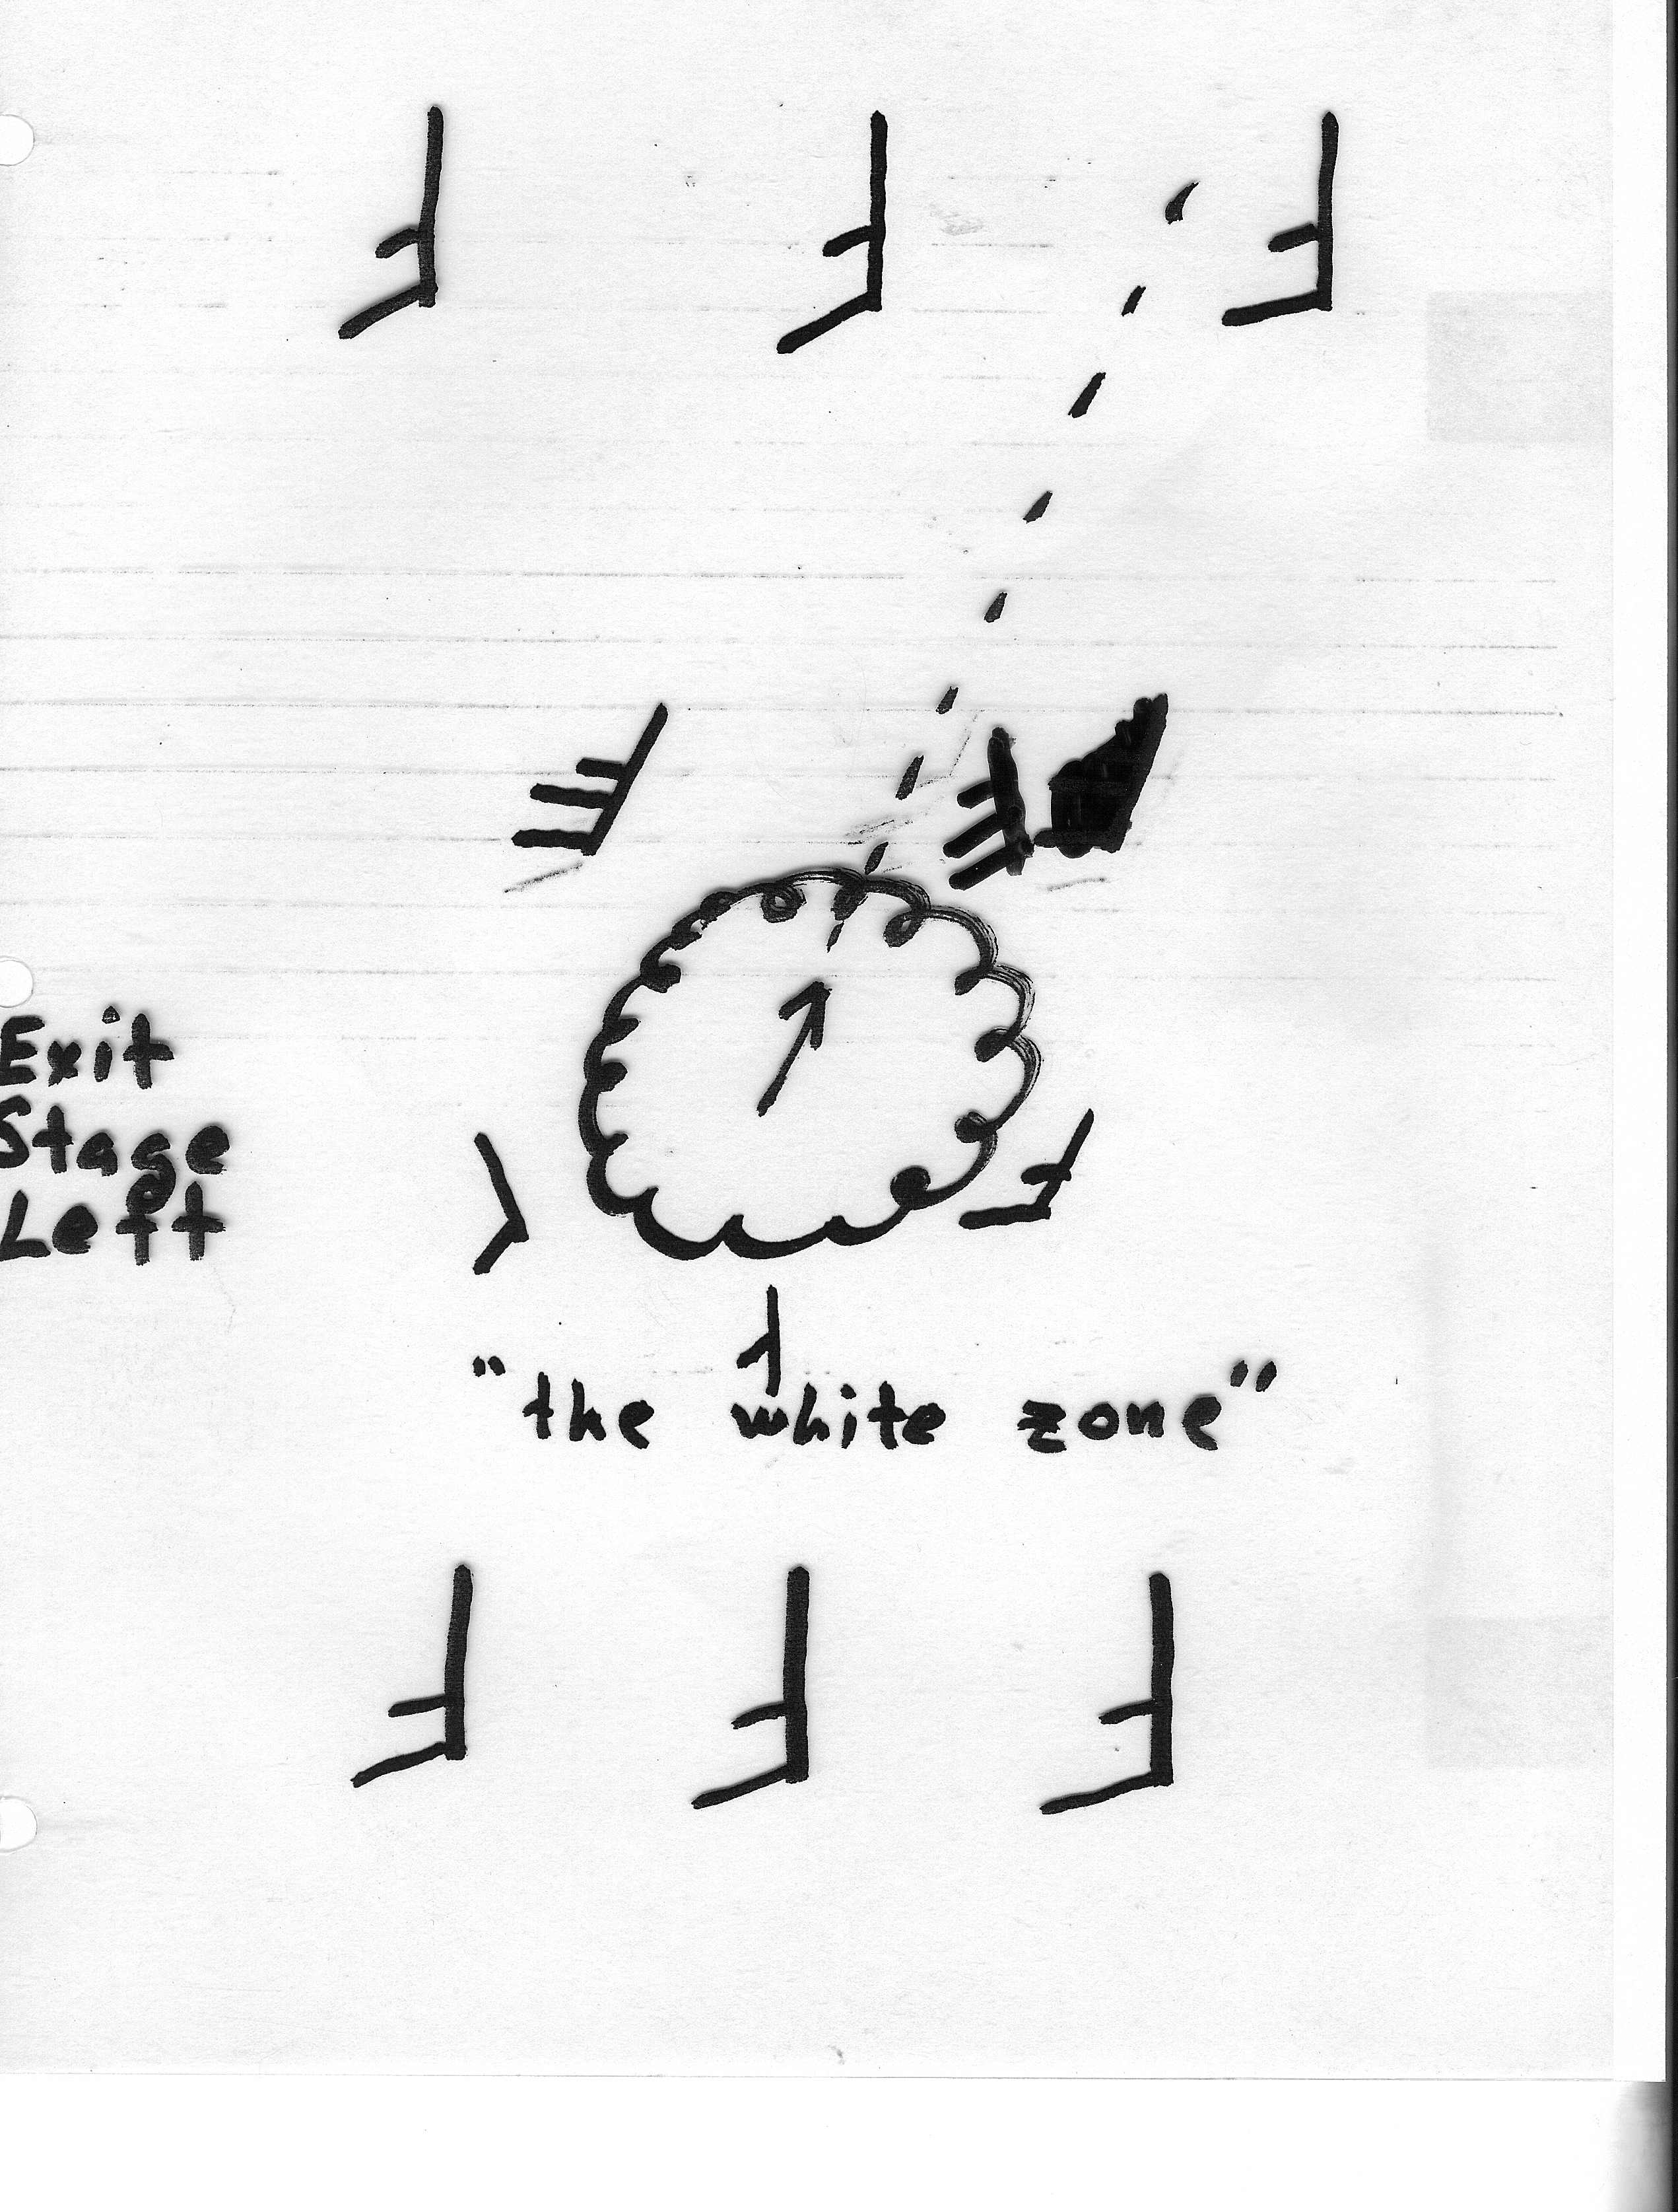 Exit
Stage
Left
"the white zone"